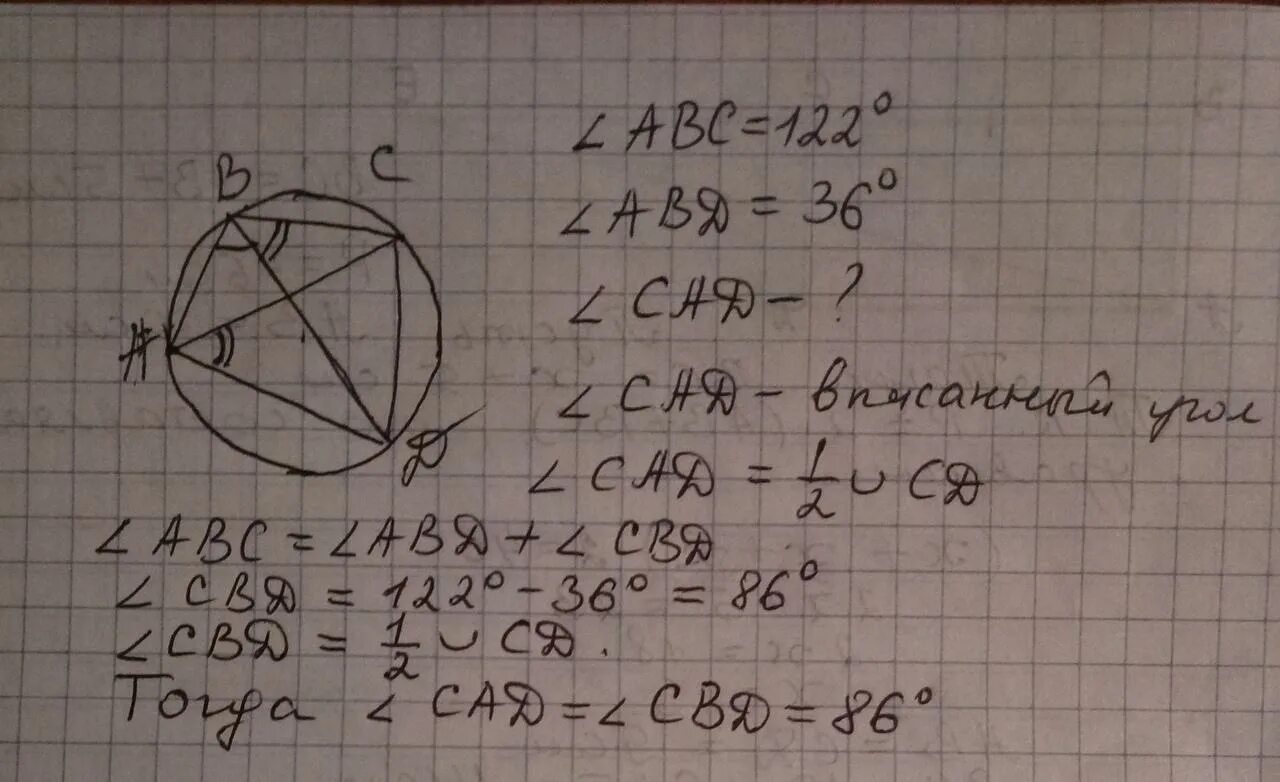 B C
A
D
∠ABC=122°
∠ABD = 36°
∠CAD - ?
∠CAD - вписанный угол
∠CAD = 1/2 ∪ CD
∠ABC = ∠ABD + ∠CBD
∠CBD = 122° - 36° = 86°
∠CBD = 1/2 ∪ CD.
Тогда ∠CAD = ∠CBD = 86°